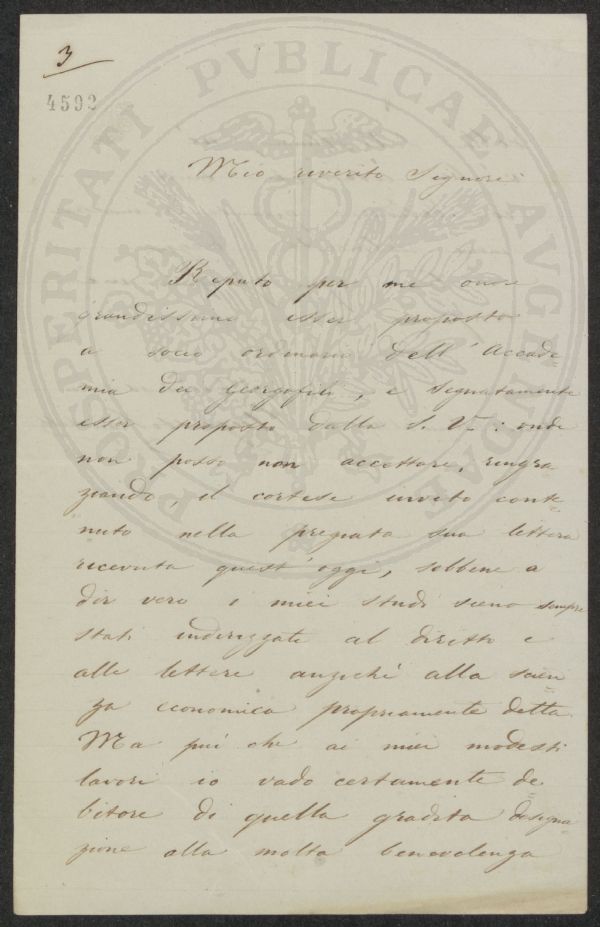 3
4592
PROSPERITATI PVBLICAE AVGENDAE
Mio riverito Signore
Reputo per me onore
grandissimo esser proposto
a socio ordinario dell'Accade
mia dei Georgofili, e segnatamente
esser proposto dalla S. V.ra: onde
non posso non accettare, ringra
ziando, il cortese invito conte
nuto nella pregiata sua lettera
ricevuta quest'oggi, sebbene a
dir vero i miei studi sieno sempre
stati indirizzati al diritto e
alle lettere anzichè alla scien
za economica propriamente detta.
Ma più che ai miei modesti
lavori io vado certamente de
bitore di quella gradita designa
zione alla molta benevolenza